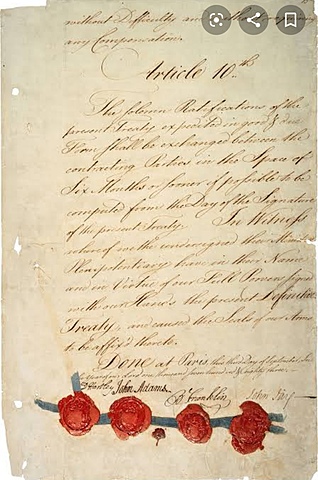 without Difficulty and without
any Compensation.
Article 10th
The solemn Ratifications of the
present Treaty expedited in good & due
Form shall be exchanged between the
contracting Parties in the Space of
Six Months or sooner if possible to be
computed from the Day of the Signature
of the present Treaty. In Witness
whereof we the undersigned their Ministers
Plenipotentiary have in their Name
and in Virtue of our Full Powers signed
with our Hands the present Definitive
Treaty, and caused the Seals of our Arms
to be affix'd thereto.
Done at Paris, this third Day of September,
D Hartley John Adams. B Franklin John Jay